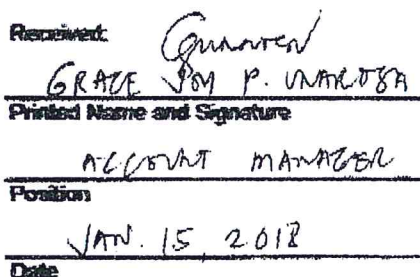 Received:
GRACE JOY P.
Printed Name and Signature
ACCOUNT MANAGER
Position
JAN. 15, 2018
Date